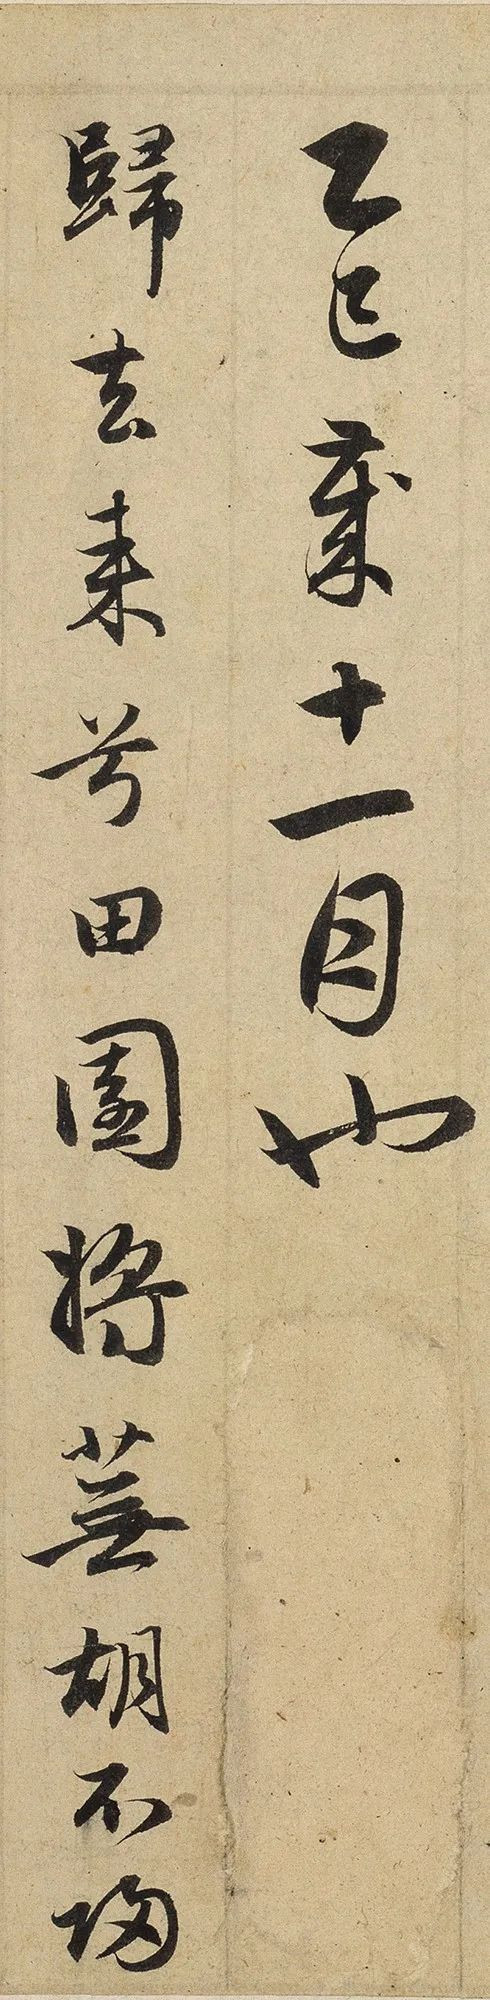 乙巳歲十一月也
歸去來兮田園將蕪胡不歸